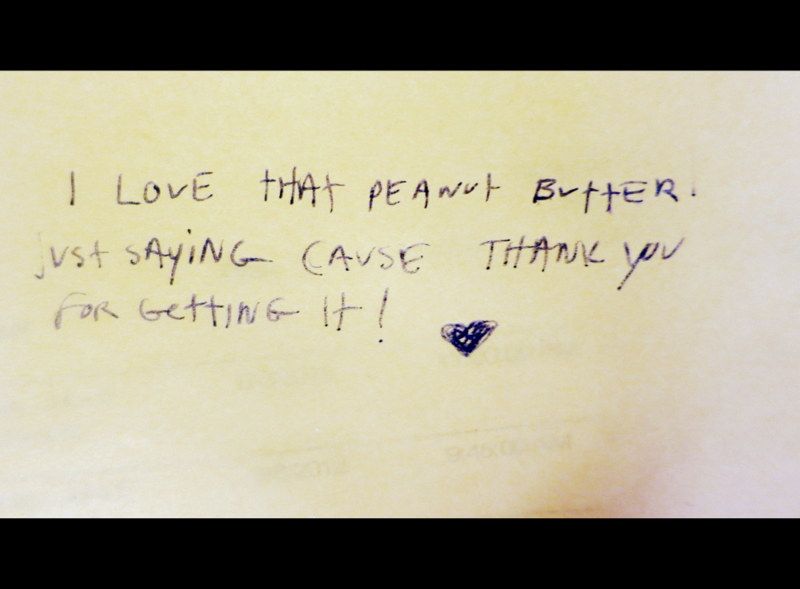 I LOVE tHAt PEANut ButtER.
just SAYiNG CAUSE THANK you
FOR GettING It!